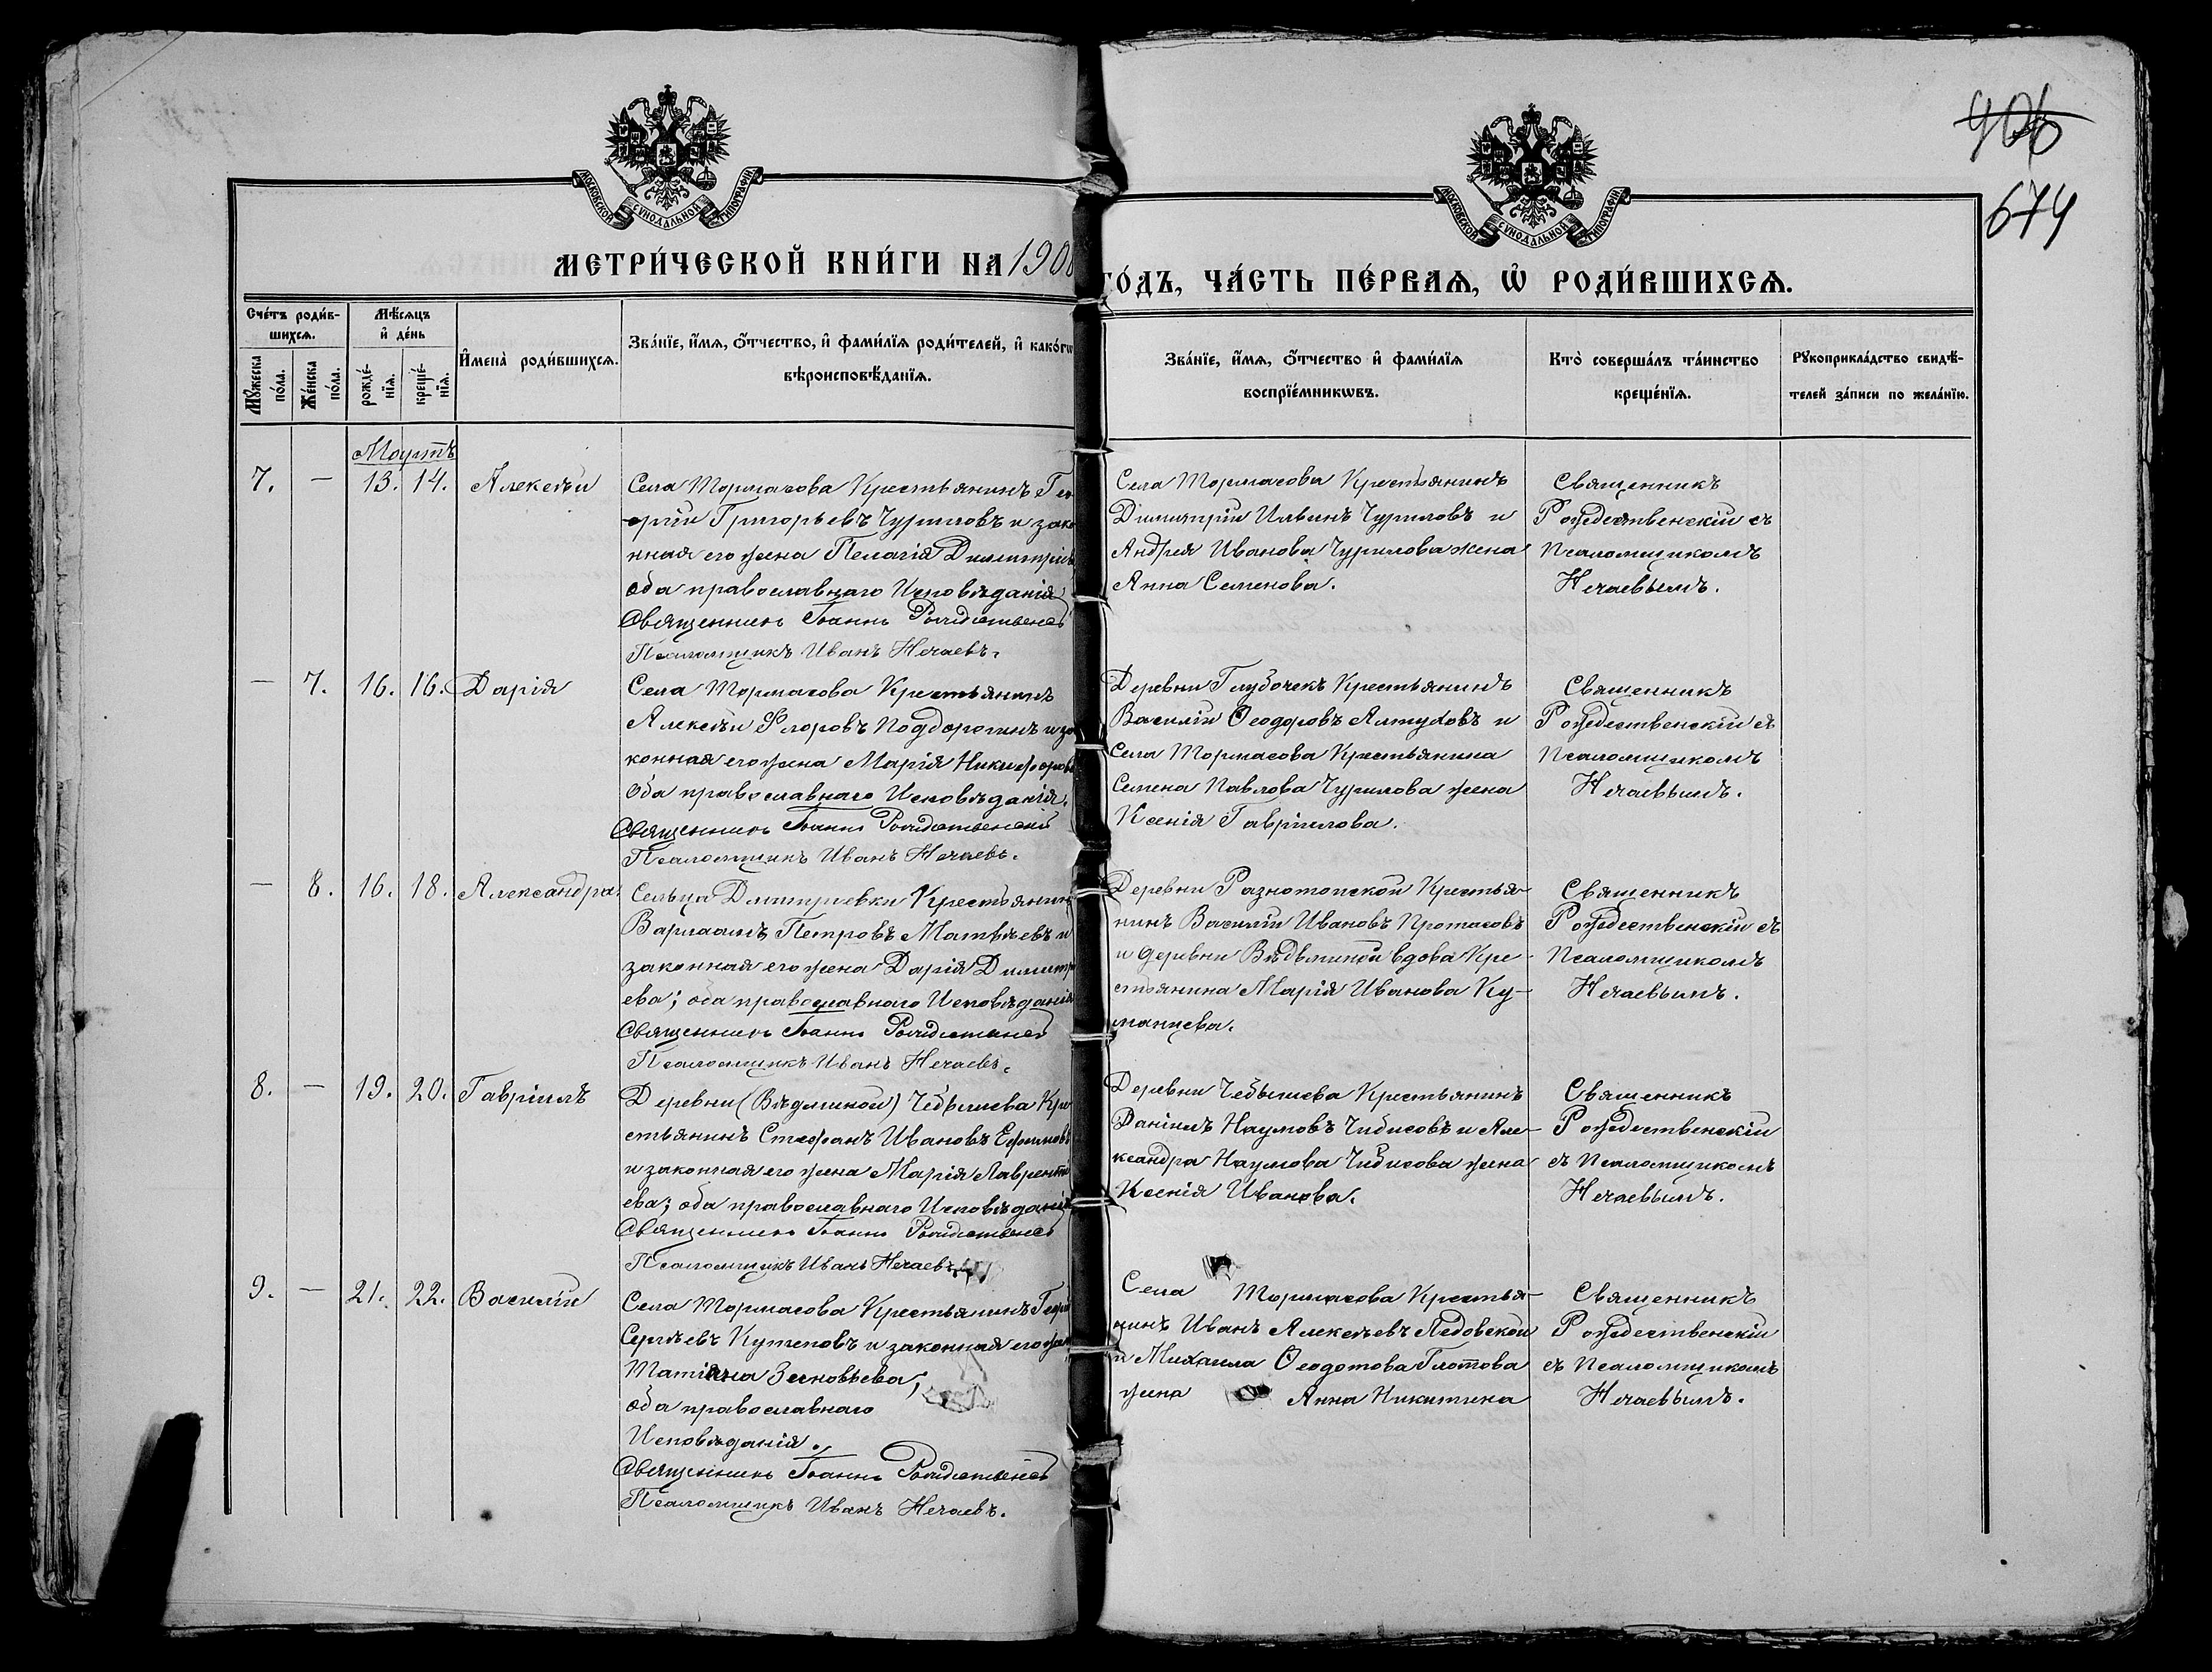 906
674
МОСКОВСКОЙ СѴНОДАЛЬНОЙ ТИПОГРАФІИ
МОСКОВСКОЙ СѴНОДАЛЬНОЙ ТИПОГРАФІИ
МЕТРИ́ЧЕСКОЙ КНИ́ГИ НА 1900
ГО́ДЪ, ЧА́СТЬ ПЕ́РВАѦ, Ѡ҆ РОДИ́ВШИХСѦ.
Сче́тъ роди́в-
шихсѧ.
Мꙋ́жеска по́ла.
Же́нска по́ла.
Мѣ́сѧцъ
и҆ де́нь
рожде́-
нїѧ.
креще́-
нїѧ.
И҆мена̀ роди́вшихсѧ.
Зва́нїе, и҆́мѧ, ѻ҆́тчество, и҆ фами́лїѧ роди́телей, и҆ како́гѡ
вѣроисповѣ́данїѧ.
Зва́нїе, и҆́мѧ, ѻ҆́тчество и҆ фами́лїѧ
воспрїе́мникѡвъ.
Кто̀ соверша́лъ та́инство
креще́нїѧ.
Рꙋкоприкла́дство свидѣ́-
телей за́писи по жела́нїю.
Мартъ
7. — 13. 14. Алексѣй
Села Тормасова Крестьянинъ Ге
оргій Григорьевъ Чуриловъ и зако
нная его жена Пелагія Димитріе
оба православнаго Исповѣданія
Священникъ Іоаннъ Рождественск
Псаломщикъ Иванъ Нечаевъ.
Села Тормасова Крестьянинъ
Димитрій Ильинъ Чуриловъ и
Андрея Иванова Чурилова жена
Анна Семенова.
Священникъ
Рождественскій съ
Псаломщикомъ
Нечаевымъ.
— 7. 16. 16. Дарія
Села Тормасова Крестьянинъ
Алексѣй Флоровъ Поддорогинъ и за
конная его жена Марія Никифорова
Оба православнаго Исповѣданія.
Священникъ Іоаннъ Рождественскій
Псаломщикъ Иванъ Нечаевъ.
Деревни Глубочекъ Крестьянинъ
Василій Ѳеодоровъ Алтуховъ и
Села Тормасова Крестьянина
Семена Павлова Чурилова жена
Ксенія Гавріилова.
Священникъ
Рождественскій съ
Псаломщикомъ
Нечаевымъ.
— 8. 16. 18. Александра
Сельца Дмитріевки Крестьянинъ
Варлаамъ Петровъ Матвѣевъ и
законная его жена Дарія Димитрі
ева; оба православнаго Исповѣданія
Священникъ Іоаннъ Рождественск
Псаломщикъ Иванъ Нечаевъ.
Деревни Разнотопской Крестья-
нинъ Василій Ивановъ Протасовъ
и деревни Вѣдьминой вдова Кре-
стьянина Марія Иванова Ку-
манцева.
Священникъ
Рождественскій съ
Псаломщикомъ
Нечаевымъ.
8. — 19. 20. Гавріилъ
Деревни (Вѣдминой) Чебышева Кре
стьянинъ Стефанъ Ивановъ Ефимовъ
и законная его жена Марія Лаврентi
ева; оба православнаго Исповѣданія
Священникъ Іоаннъ Рождественск
Псаломщикъ Иванъ Нечаевъ.
Деревни Чебышева Крестьянинъ
Даніилъ Наумовъ Чибисовъ и Але-
ксандра Наумова Чибисова жена
Ксенія Иванова.
Священникъ
Рождественскій
съ Псаломщикомъ
Нечаевымъ.
9. — 21. 22. Василій
Села Тормасова Крестьянинъ Георгі
Сергѣевъ Кутеповъ и законная его жен
Татіана Зиновьева;
оба православнаго
Исповѣданія.
Священникъ Іоаннъ Рождественск
Псаломщикъ Иванъ Нечаевъ.
Села Тормасова Крестья-
нинъ Иванъ Алексѣевъ Лядовской
и Михаила Ѳеодотова Глотова
жена Анна Никитина
Священникъ
Рождественскій
съ Псаломщикомъ
Нечаевымъ.